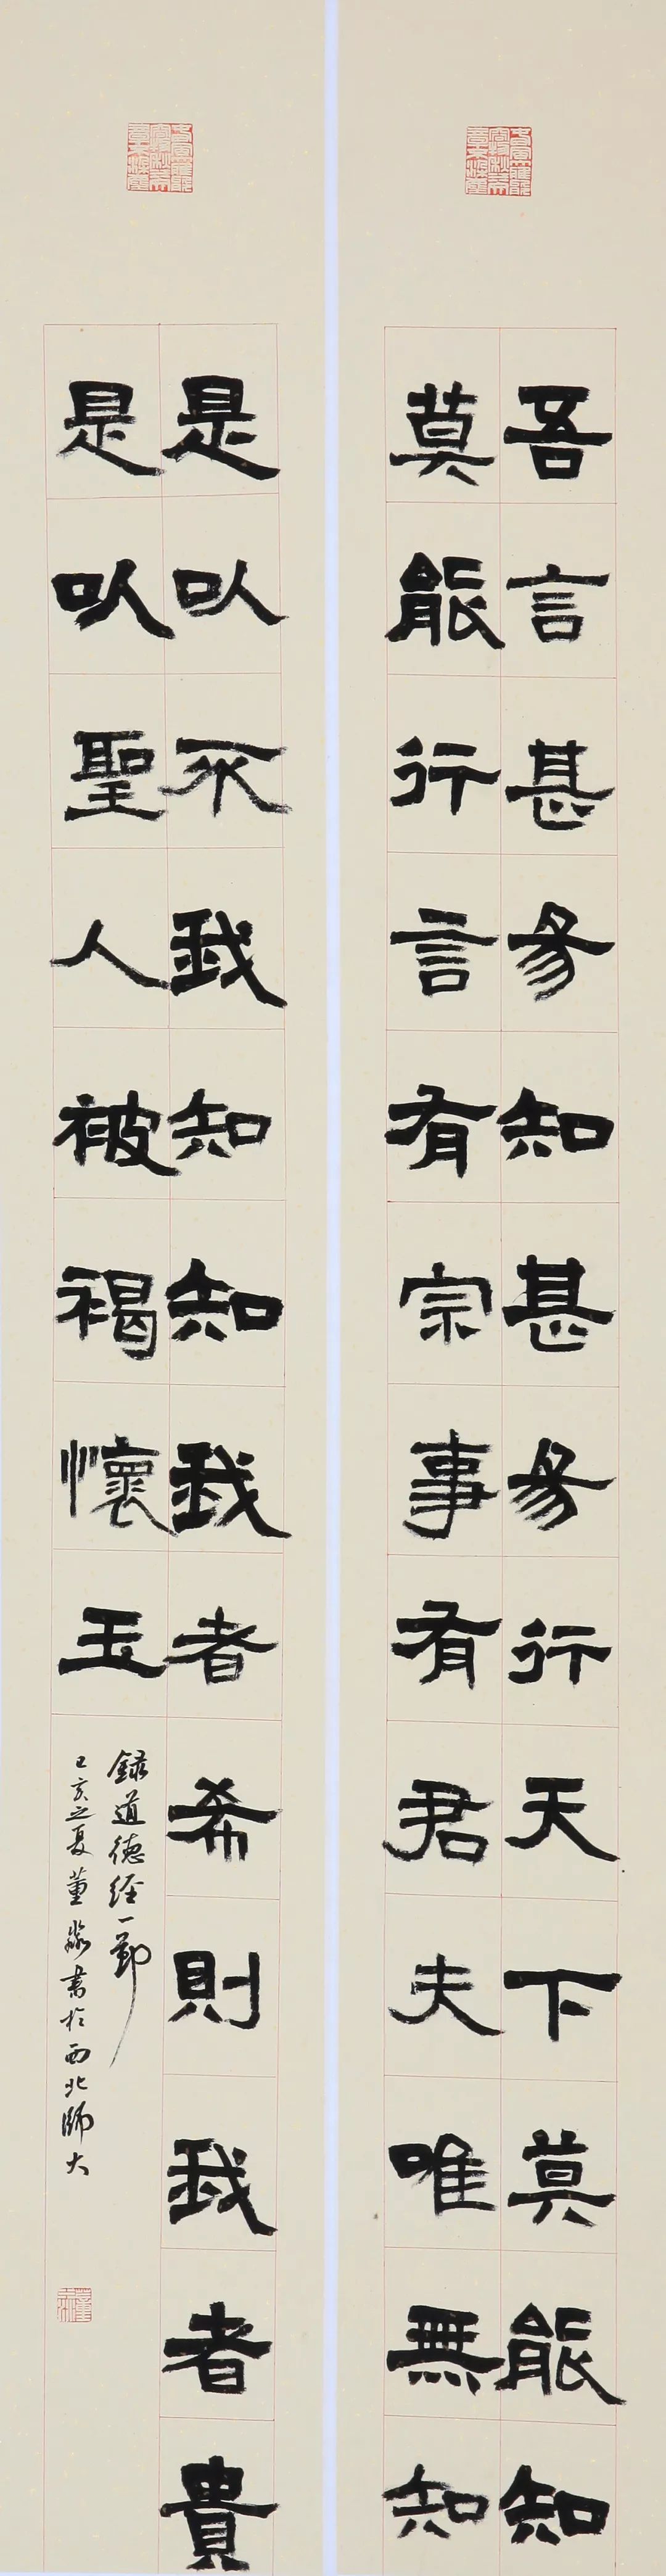 吾言甚易知甚易行天下莫能知
莫能行言有宗事有君夫唯無知
是以不我知知我者希則我者貴
是以聖人被褐懷玉
錄道德經一節
己亥之夏董淼書於西北師大